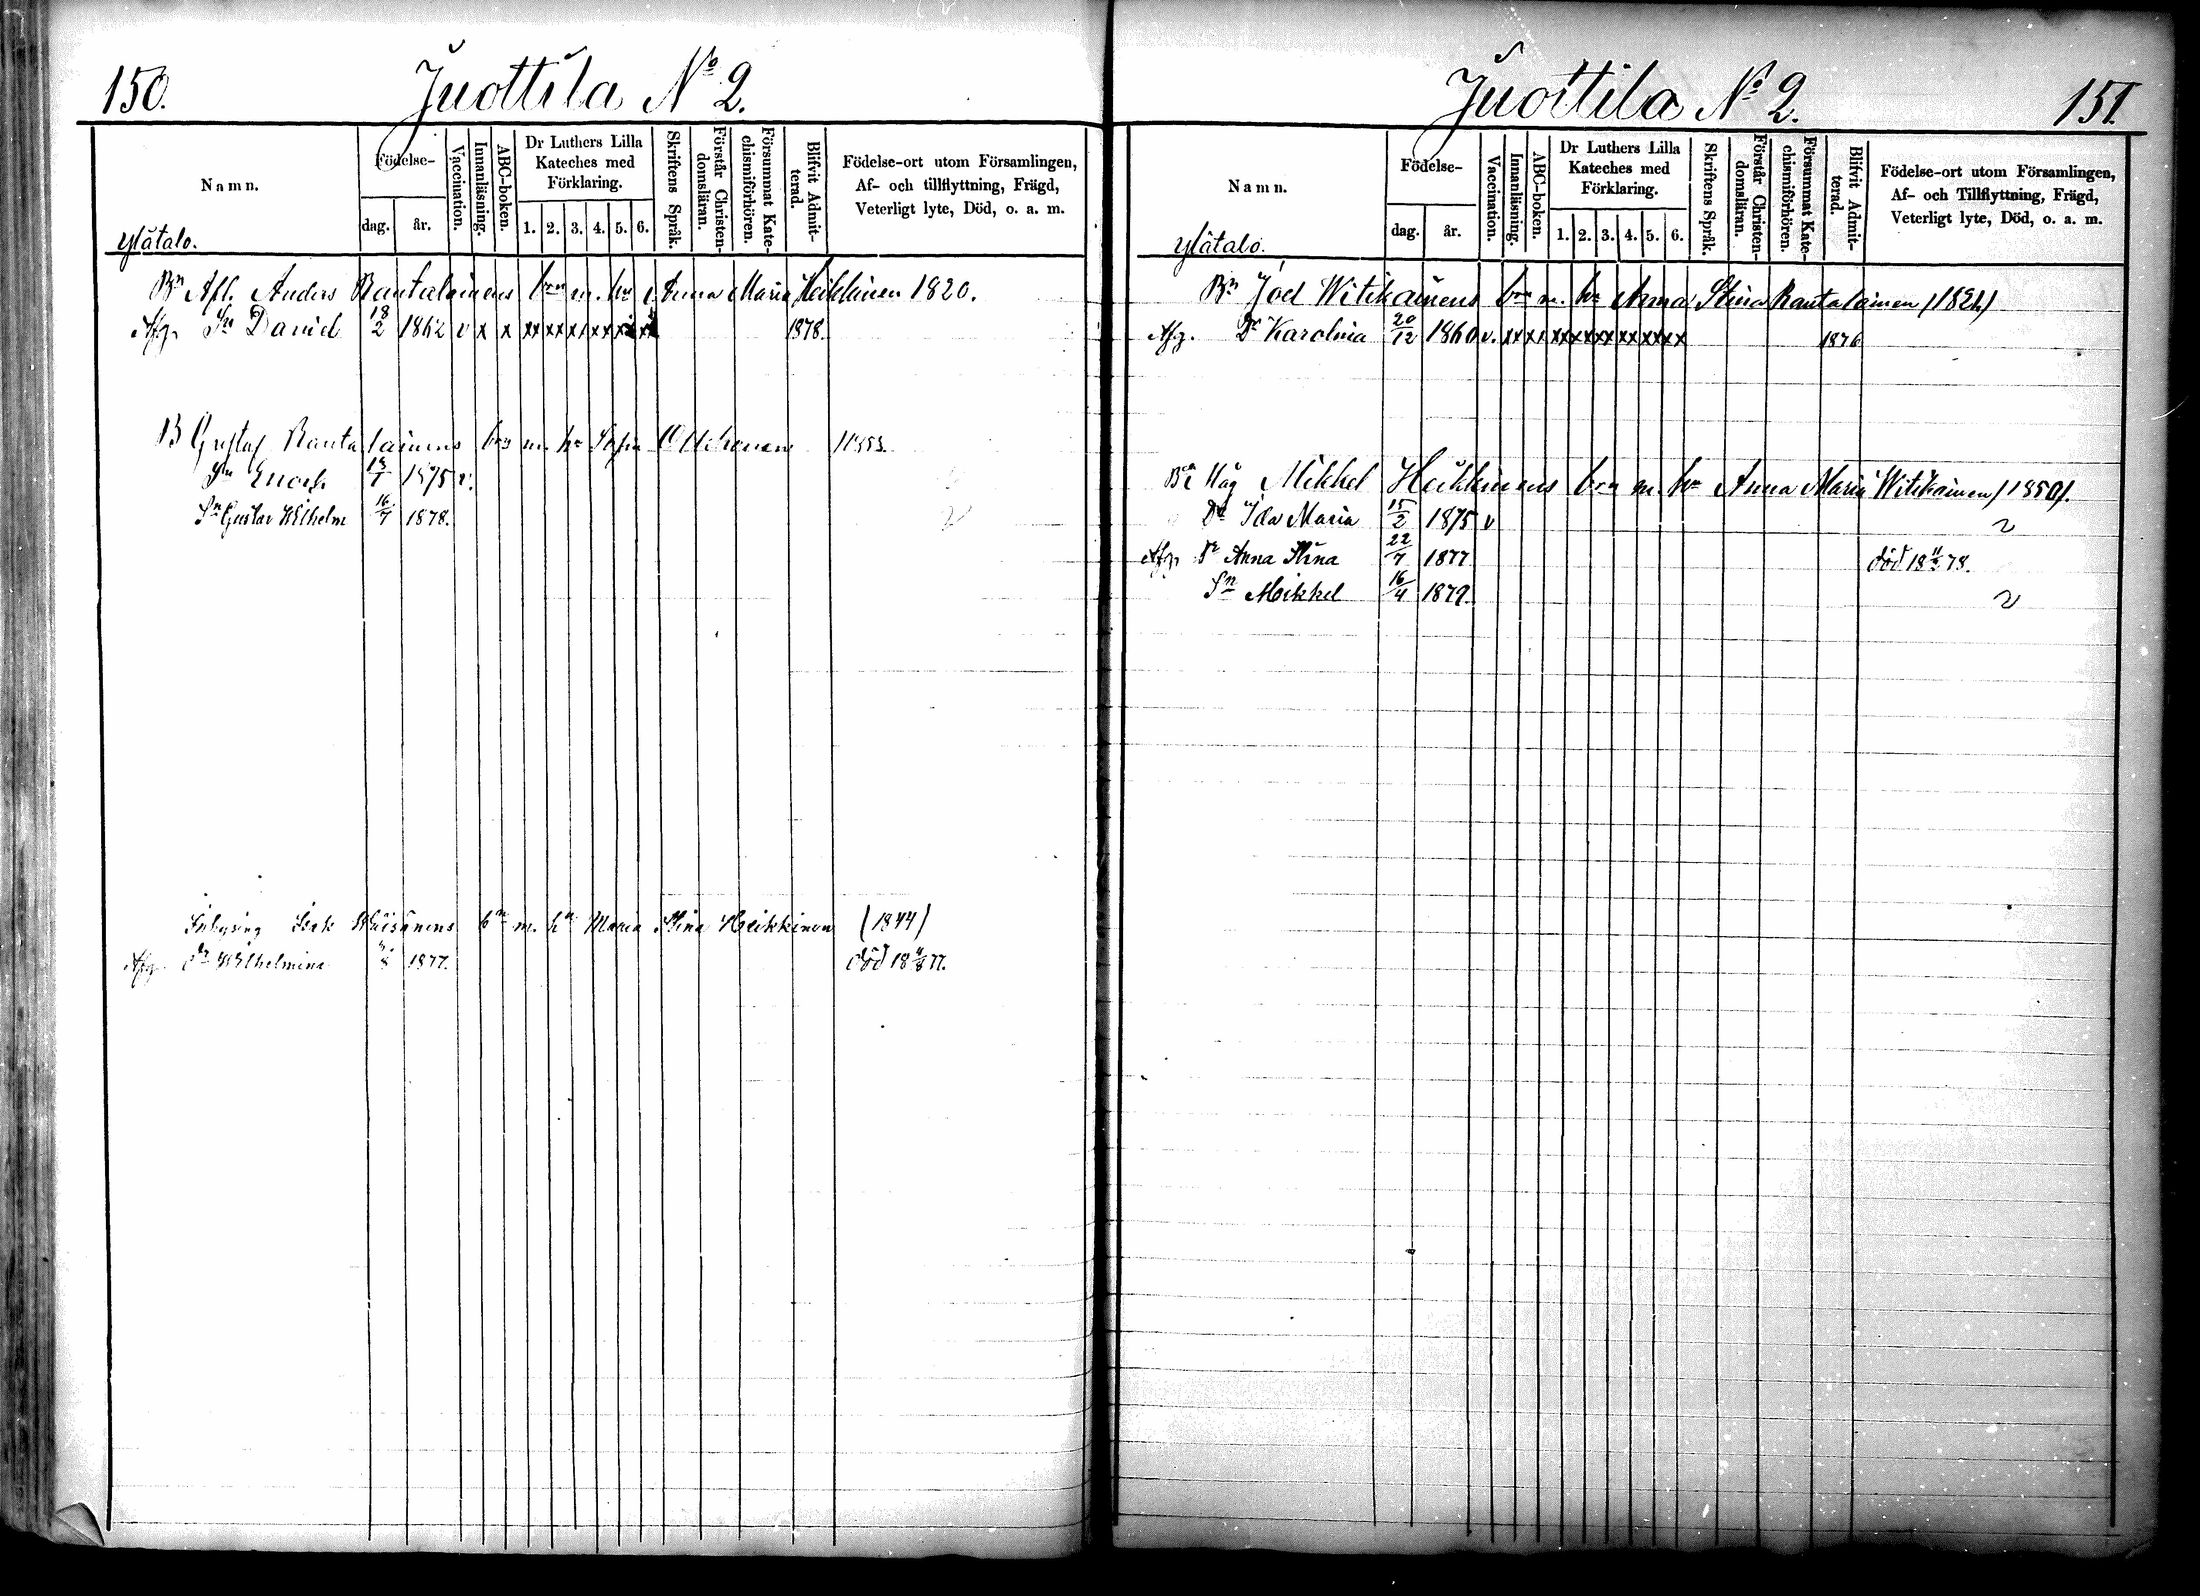 150.
Juottila No 2.
Namn.
Födelse-
dag.
år.
Vaccination.
Innanläsning.
ABC-boken.
Dr Luthers Lilla
Kateches med
Förklaring.
1. 2. 3. 4. 5. 6.
Skriftens Språk.
Förstår Christen-
domsläran.
Försummat Kate-
chismiförhören.
Blifvit Admit-
terad.
Födelse-ort utom Församlingen,
Af- och tillflyttning, Frägd,
Veterligt lyte, Död, o. a. m.
Ylätalo.
Bn Afl. Anders Rantalainens brn m. hu Anna Maria Heikkinen 1820.
Afg. Sn David 18/2 1862 v x x xx xx xx xx xx xx 1878.
B Gustaf Rantalainens brn m. hu Sofia
Sn Enoch 1875 v.
Sn Gustav Wilhelm 16/7 1878.
Inhysing Isak Wäisänens bn m. hu Maria Stina Heikkinen (1844)
Afg. dr Wilhelmina 1877. död 18 77.
Juottila No 2.
151.
Namn.
Födelse-
dag.
år.
Vaccination.
Innanläsning.
ABC-boken.
Dr Luthers Lilla
Kateches med
Förklaring.
1. 2. 3. 4. 5. 6.
Skriftens Språk.
Förstår Christen-
domsläran.
Försummat Kate-
chismiförhören.
Blifvit Admit-
terad.
Födelse-ort utom Församlingen,
Af- och Tillflyttning, Frägd,
Veterligt lyte, Död, o. a. m.
Ylätalo.
Bn Joel Witikainens brn m. hu Anna Stina Rantalainen
Afg. Dr Karolina 20/12 1860 v. xx xx xx xx xx xx xx xx 1876
Bn Måg Mikkel Heikkinens brn m. hu Anna Maria Witikainen /1850/.
Dr Ida Maria 15/2 1875 v
Afg. Dr Anna Stina 22/7 1877 död 18 78.
Sn Mikkel 16/4 1879.